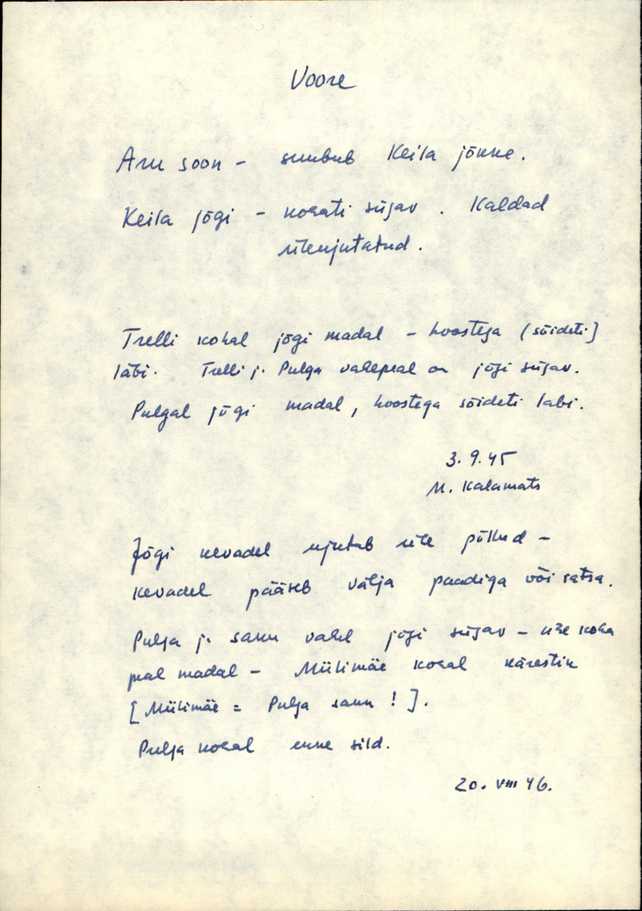 Voore
Aru soon - suubub Keila jõkke.
Keila jõgi - kohati sügav. Kaldad
üleujutatud.
Trelli kohal jõgi madal - hoostega (sõideti)
läbi. Trelli j. Pulga vahepeal on jõgi sügav.
Pulgal jõgi madal, hoostega sõideti läbi.
3.9.45
M. Kalamats
Jõgi kevadel ujutab üle põllud -
kevadel pääseb välja paadiga või
Pulga j. sauu vahel jõgi sügav - ühe koha
peal madal - Mülimäe kohal kärestik
[Mülimäe = Pulga sauu !].
Pulga kohal enne sild.
20. VIII 46.